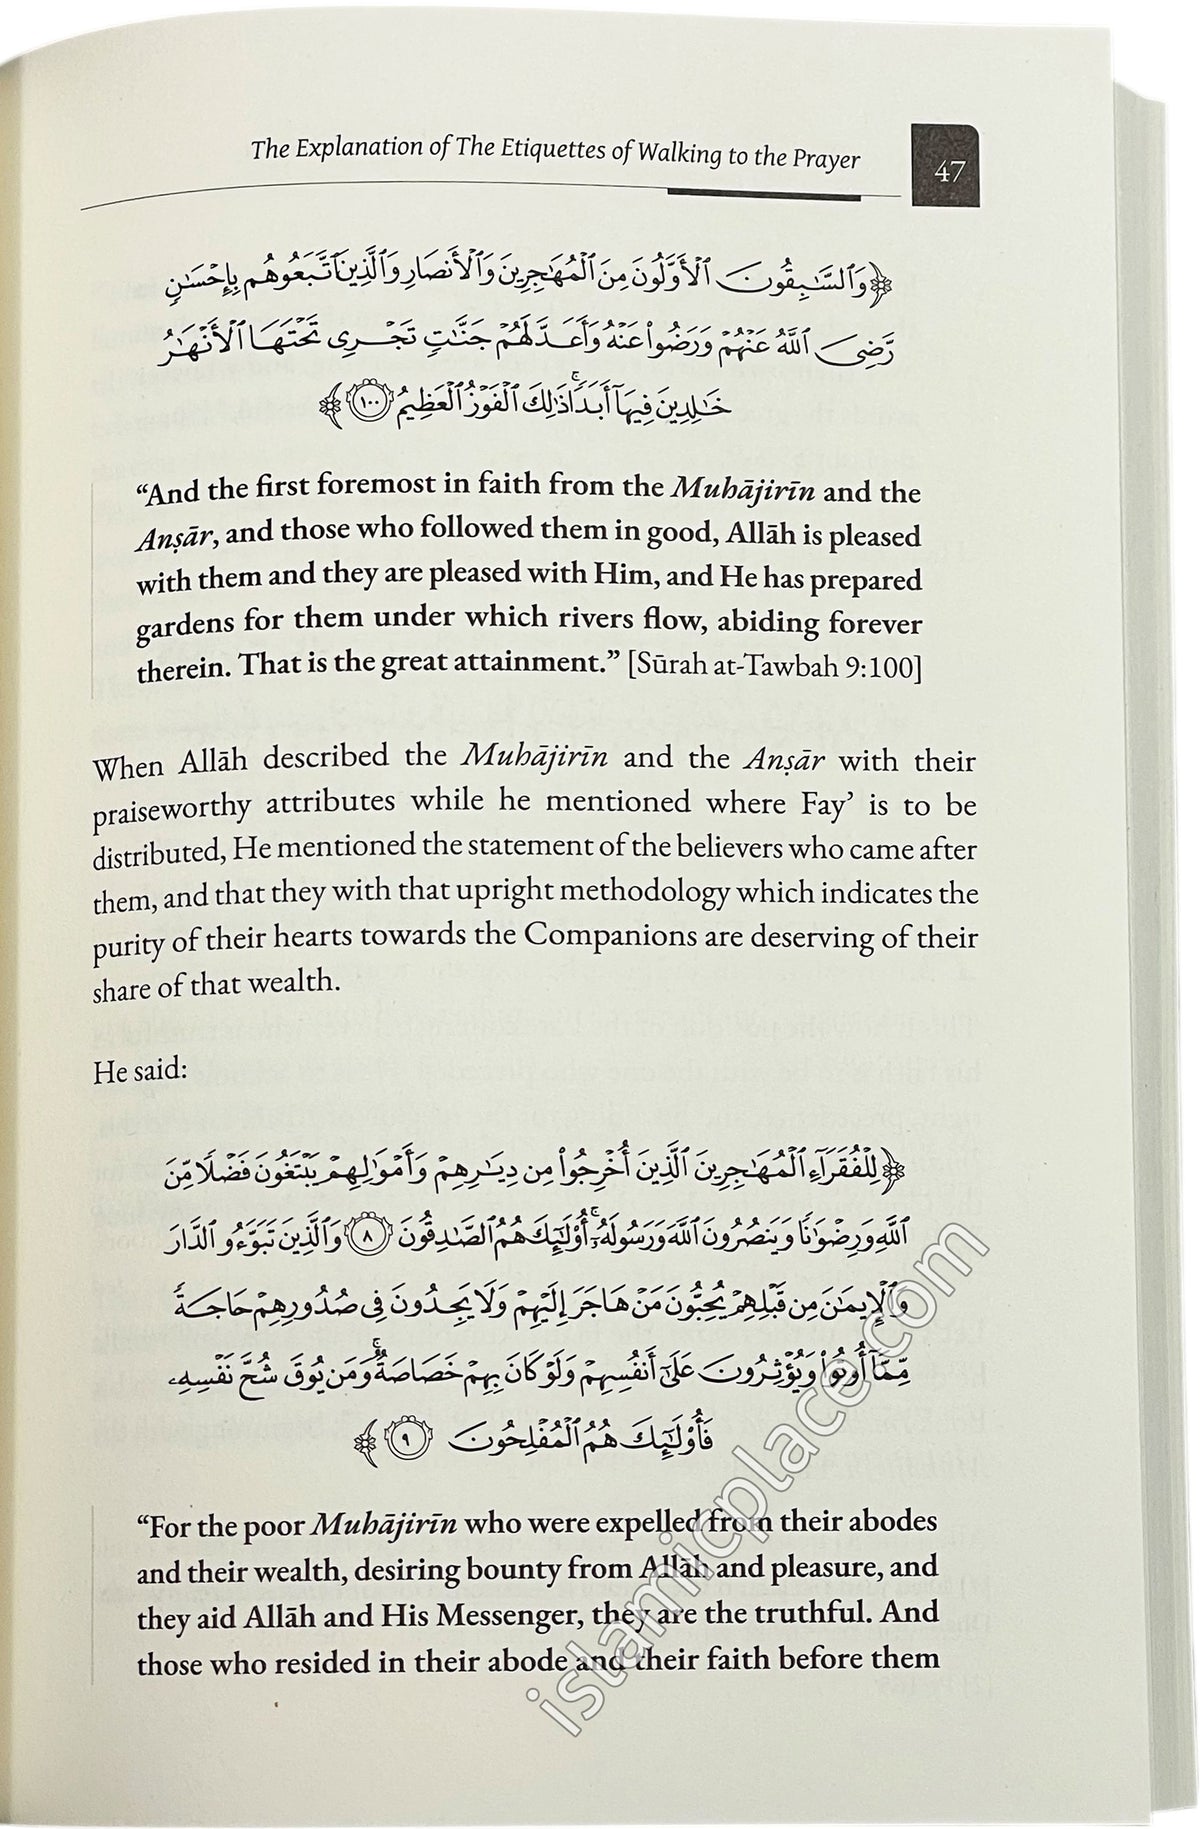 The Explanation of The Etiquettes of Walking to the Prayer
47
﴿وَٱلسَّٰبِقُونَ ٱلْأَوَّلُونَ مِنَ ٱلْمُهَٰجِرِينَ وَٱلْأَنصَارِ وَٱلَّذِينَ ٱتَّبَعُوهُم بِإِحْسَٰنٍ
رَّضِىَ ٱللَّهُ عَنْهُمْ وَرَضُوا۟ عَنْهُ وَأَعَدَّ لَهُمْ جَنَّٰتٍ تَجْرِى تَحْتَهَا ٱلْأَنْهَٰرُ
خَٰلِدِينَ فِيهَآ أَبَدًا ۚ ذَٰلِكَ ٱلْفَوْزُ ٱلْعَظِيمُ ١٠٠﴾
“And the first foremost in faith from the Muhājirīn and the
Anṣār, and those who followed them in good, Allāh is pleased
with them and they are pleased with Him, and He has prepared
gardens for them under which rivers flow, abiding forever
therein. That is the great attainment.” [Sūrah at-Tawbah 9:100]
When Allāh described the Muhājirīn and the Anṣār with their
praiseworthy attributes while he mentioned where Fay’ is to be
distributed, He mentioned the statement of the believers who came after
them, and that they with that upright methodology which indicates the
purity of their hearts towards the Companions are deserving of their
share of that wealth.
He said:
﴿لِلْفُقَرَآءِ ٱلْمُهَٰجِرِينَ ٱلَّذِينَ أُخْرِجُوا۟ مِن دِيَٰرِهِمْ وَأَمْوَٰلِهِمْ يَبْتَغُونَ فَضْلًا مِّنَ
ٱللَّهِ وَرِضْوَٰنًا وَيَنصُرُونَ ٱللَّهَ وَرَسُولَهُۥٓ ۚ أُو۟لَٰٓئِكَ هُمُ ٱلصَّٰدِقُونَ ٨ وَٱلَّذِينَ تَبَوَّءُو ٱلدَّارَ
وَٱلْإِيمَٰنَ مِن قَبْلِهِمْ يُحِبُّونَ مَنْ هَاجَرَ إِلَيْهِمْ وَلَا يَجِدُونَ فِى صُدُورِهِمْ حَاجَةً
مِّمَّآ أُوتُوا۟ وَيُؤْثِرُونَ عَلَىٰٓ أَنفُسِهِمْ وَلَوْ كَانَ بِهِمْ خَصَاصَةٌ ۚ وَمَن يُوقَ شُحَّ نَفْسِهِۦ
فَأُو۟لَٰٓئِكَ هُمُ ٱلْمُفْلِحُونَ ٩﴾
“For the poor Muhājirīn who were expelled from their abodes
and their wealth, desiring bounty from Allāh and pleasure, and
they aid Allāh and His Messenger, they are the truthful. And
those who resided in their abode and their faith before them
islamicplace.com